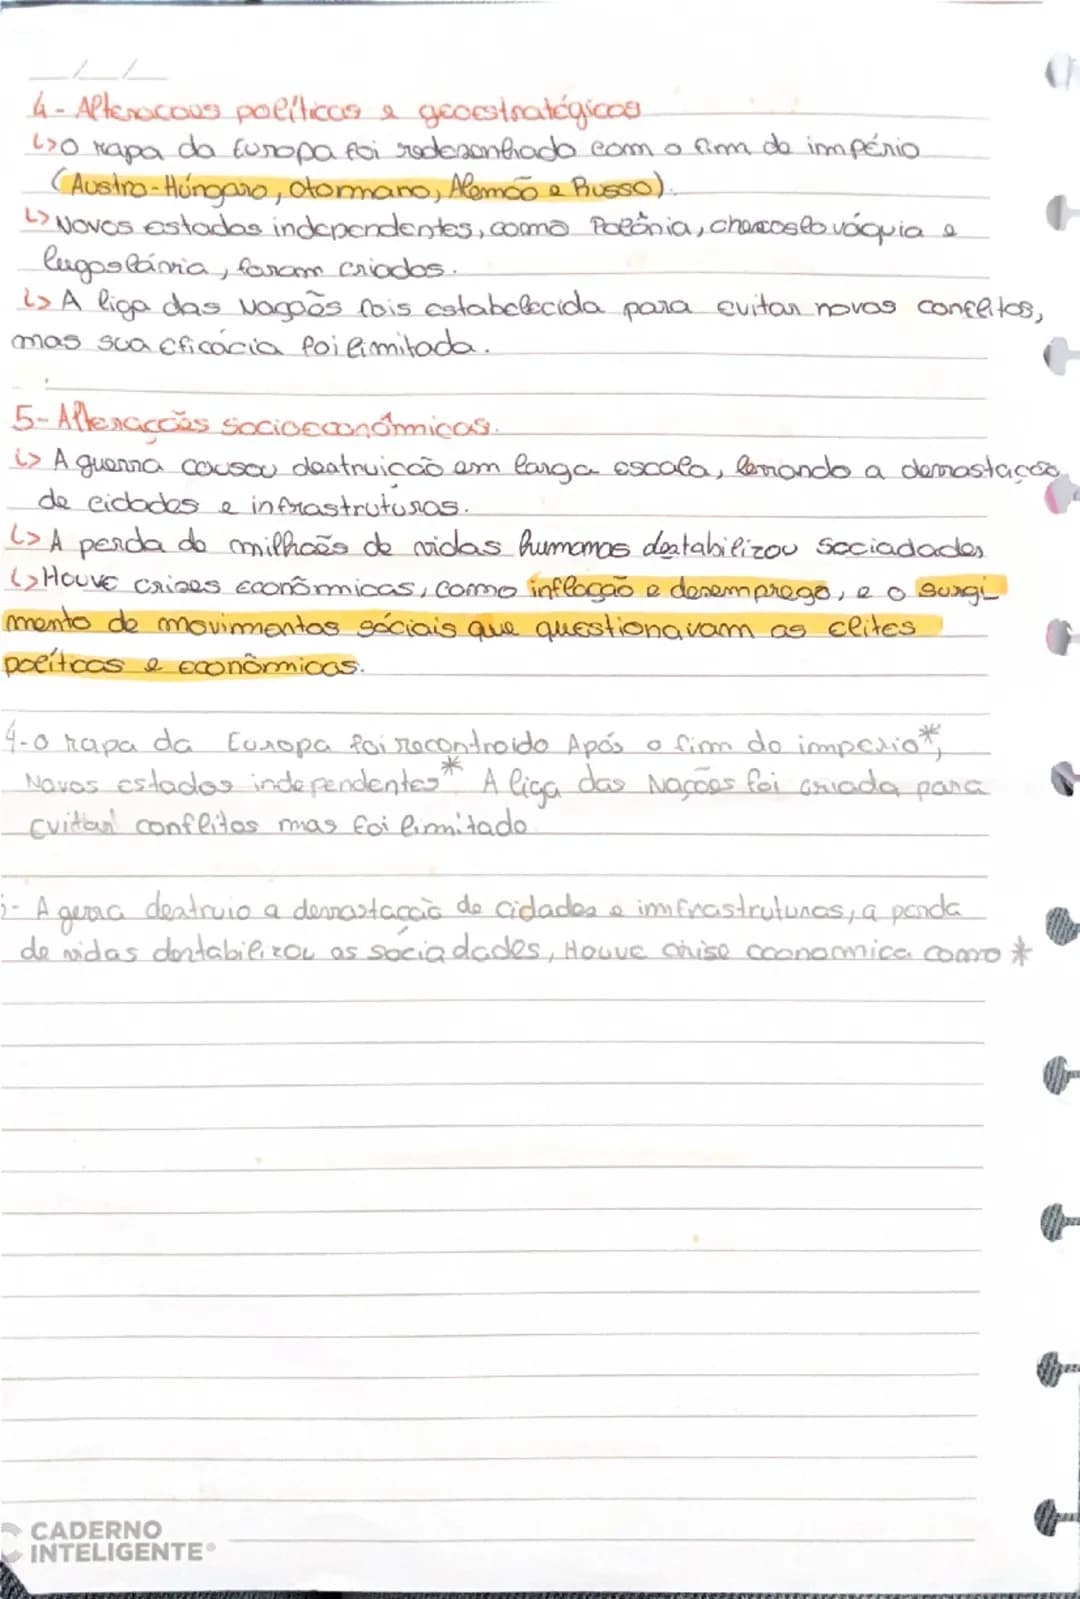 4- Alteracous políticas e geoestratégicas
↳O mapa da Europa foi redesenhado com o fim do império
(Austro-Húngaro, otormano, Alemão e Russo).
↳Novos estados independentes, como Polônia, checoslováquia e
Iugoslávia, foram criados.
↳ A liga das Nações fois estabelecida para evitar novos conflitos,
mas sua eficácia foi limitada.
5- Alterações socioeconômicas.
↳ A guerra causou deatruição em larga escala, levando a devastação
de cidades e infrastruturas.
↳ A perda de milhões de vidas humanas deatabilizou sociadades
↳ Houve crises econômicas, como inflação e desemprego, e o surgi
mento de movimentos sóciais que questionavam as elites
políticas e econômicas.
4-O mapa da Europa foi recontroido Após o fim do imperio*,
Novos estados independentes* A liga das Nações foi criada para
Evitar conflitos mas foi limitado
- A gerra deatruio a devastação de cidades e imfrastruturas, a perda
de vidas destabilizou as sociadades, Houve crise economica como *
CADERNO
INTELIGENTE®